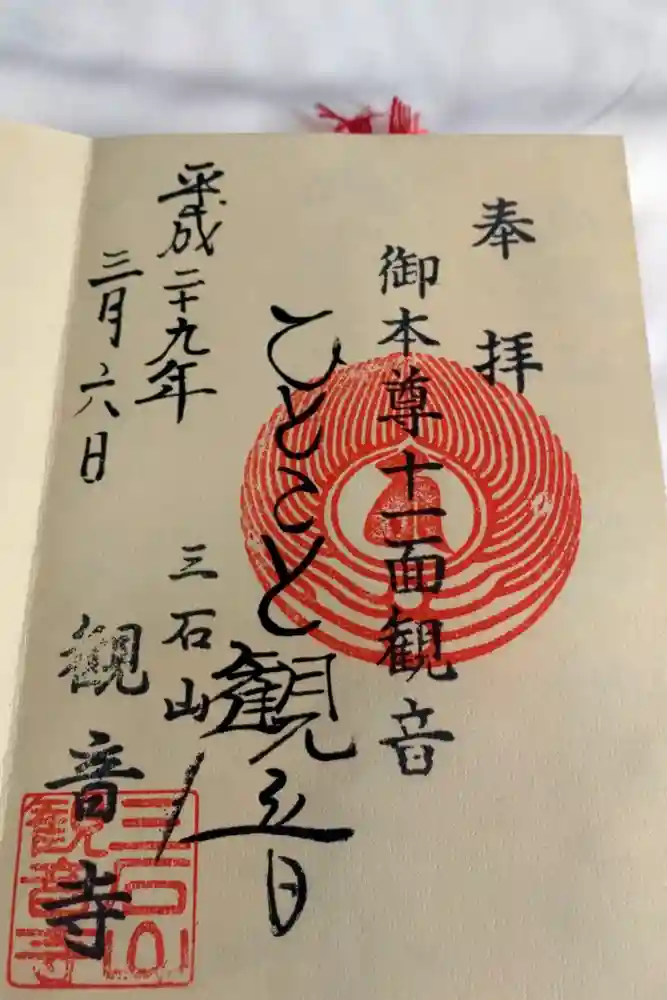 奉拝
御本尊十一面観音
ひとこと観音
平成二十九年
三月六日
三石山
観音寺
三石山
観音寺